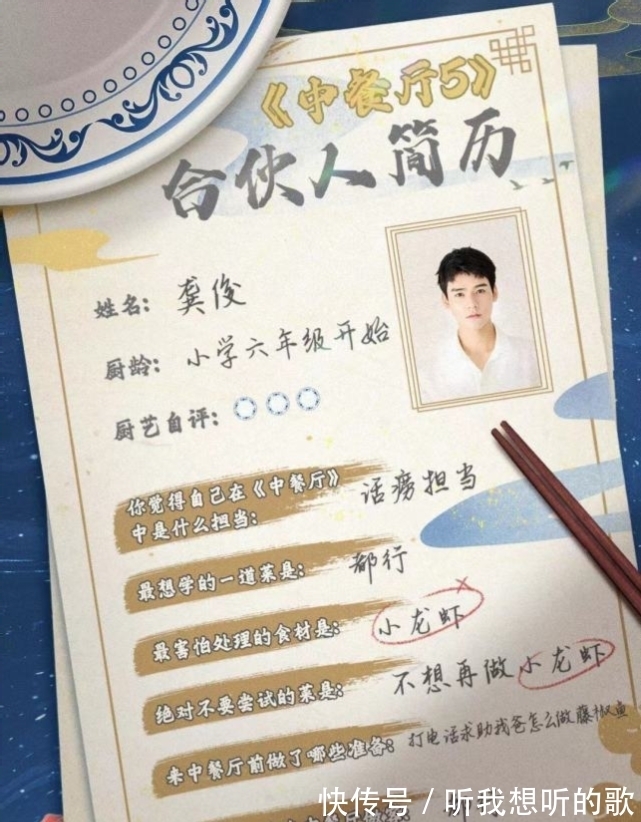 《中餐厅5》
合伙人简历
姓名: 龚俊
厨龄: 小学六年级开始
厨艺自评:
你觉得自己在《中餐厅》
中是什么担当: 话痨担当
最想学的一道菜是: 都行
最害怕处理的食材是: 小龙虾
绝对不要尝试的菜是: 不想再做小龙虾
来中餐厅前做了哪些准备: 打电话求助我爸怎么做藤椒鱼
快传号/听我想听的歌